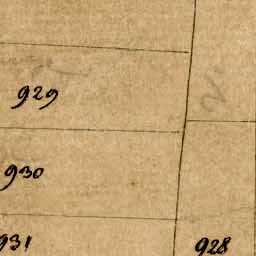 929
930
931
928